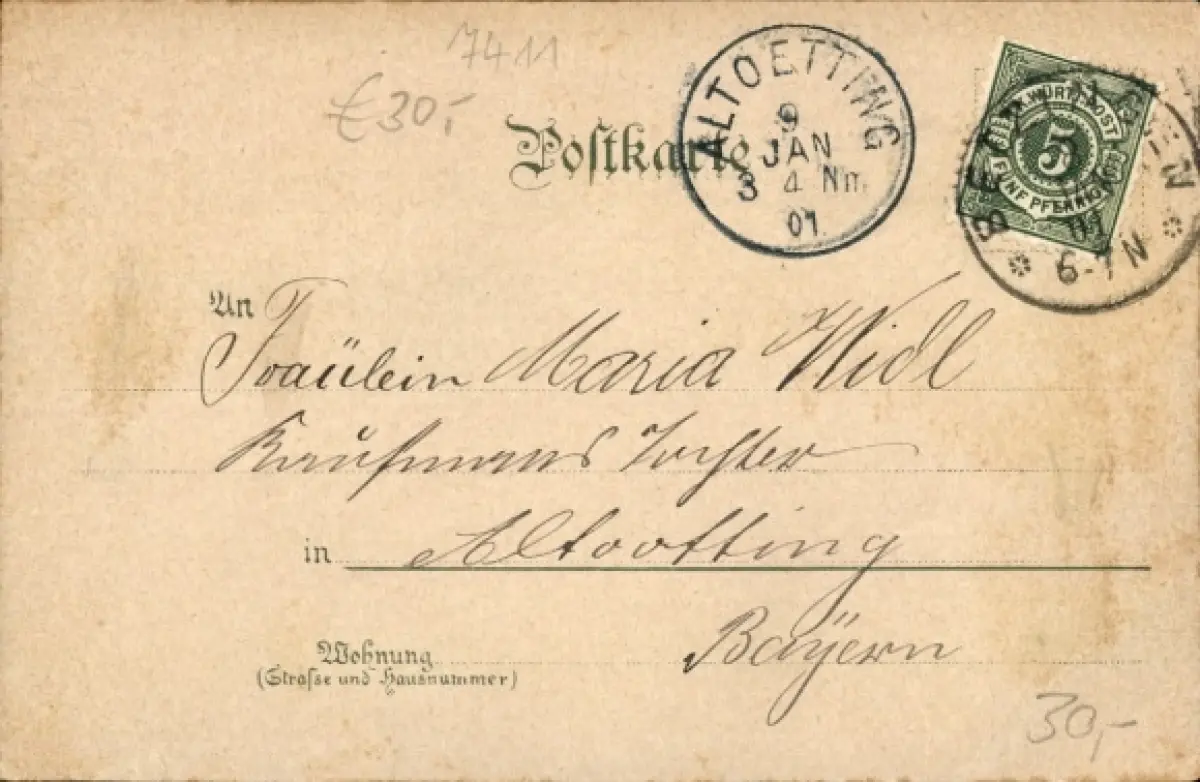 7411
€30,-
Postkarte
ALTOETTING
9
JAN
3 4 Nm.
01
K. WÜRTT. POST
5
FÜNF PFENNIG
01
6-7 N
An
Fräulein Maria Widl
Kaufmanns Tochter
in Altoetting
Bayern
Wohnung
(Strasse und Hausnummer)
30,-